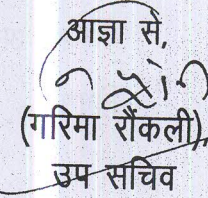 आज्ञा से,
(गरिमा रौंकली),
उप सचिव